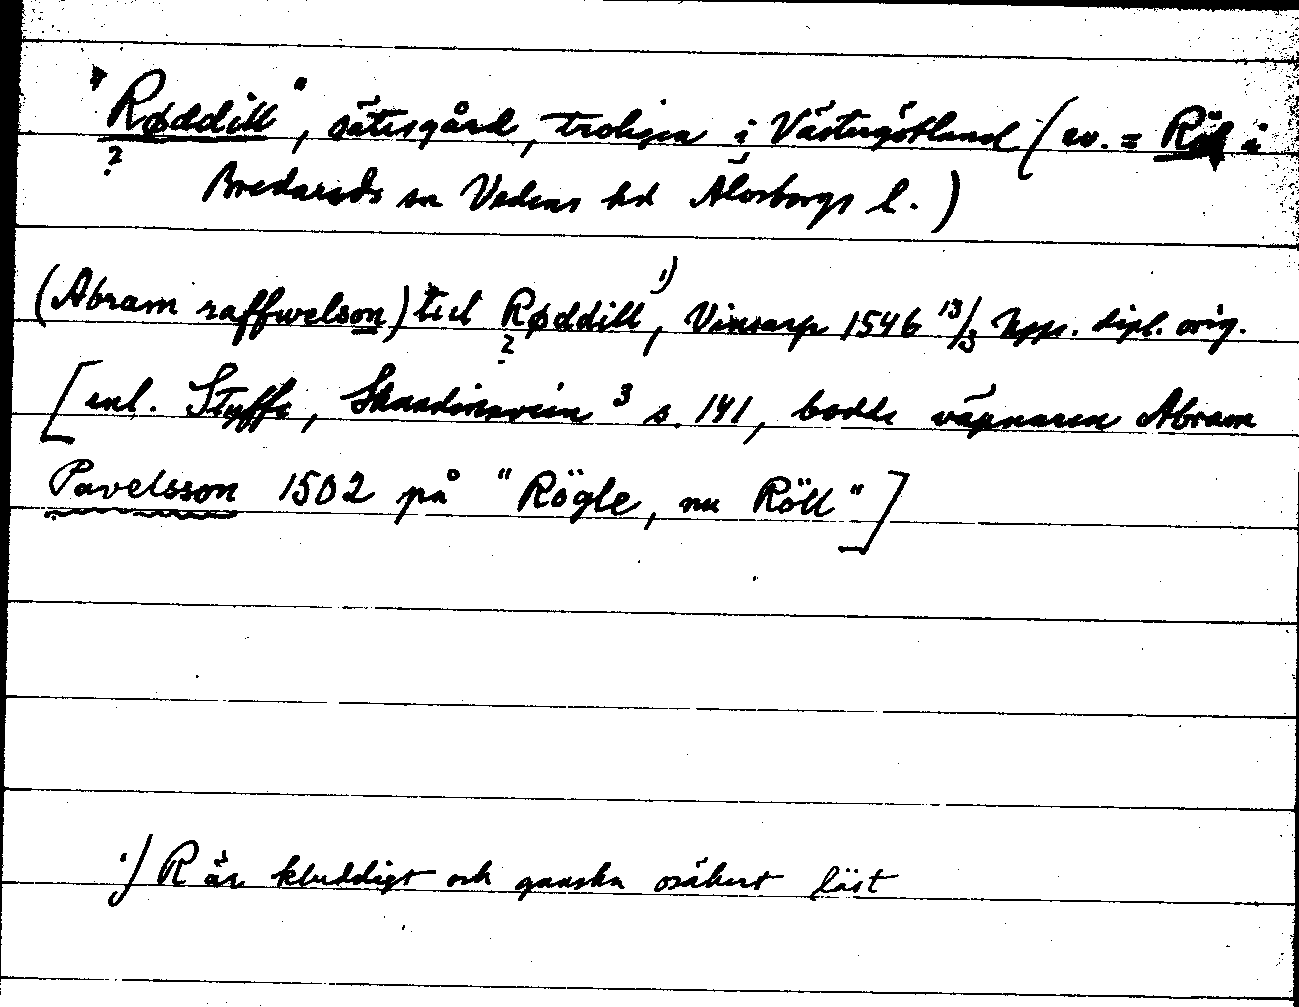 "Røddill", sätesgård, troligen i Västergötland (ev. = Röl i
?
Bredareds sn Vedens hd Älvsborgs l.)
(Abram raffwelson) till Røddill¹⁾, Vinsarp 1546 13/3 Upps. dipl. orig.
?
[enl. Styffe, Skandinavien ³ s. 141, bodde väpnaren Abram
Pavelsson 1502 på "Rögle, nu Röll"]
¹⁾ R är kluddigt och ganska osäkert läst